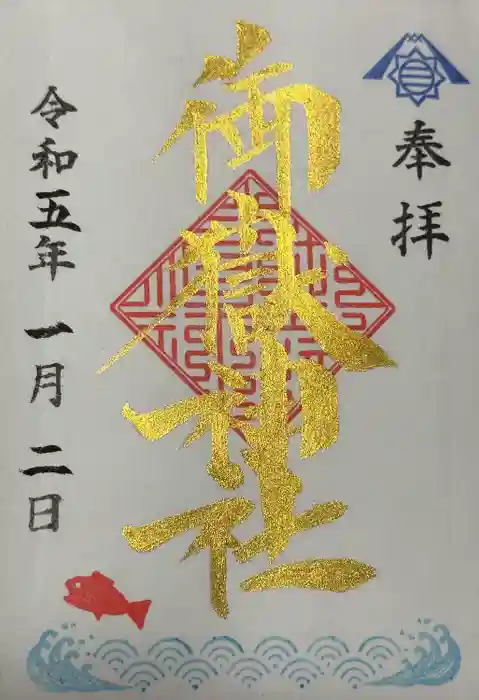 奉拝
御嶽神社
令和五年 一月 二日